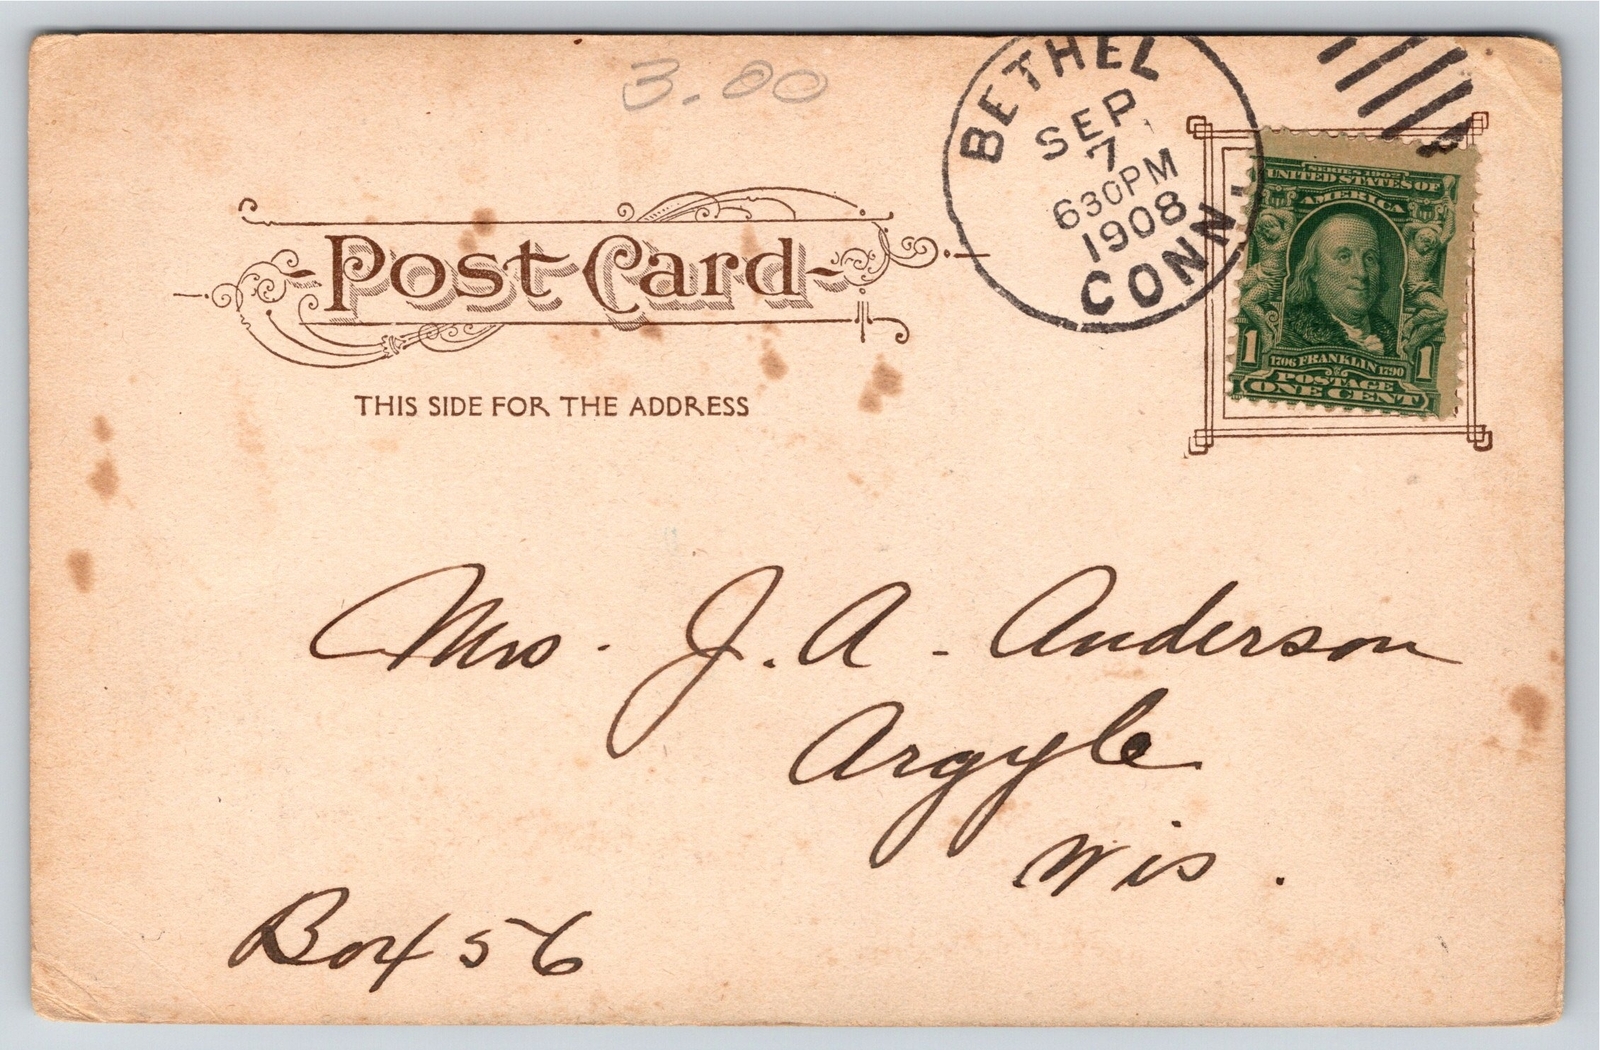 3.00
BETHEL
SEP
7
630PM
1908
CONN.
SERIES 1902
UNITED STATES OF
AMERICA
1706 FRANKLIN 1790
1 POSTAGE 1
ONE CENT
Post Card
THIS SIDE FOR THE ADDRESS
Mrs. J. A. Anderson
Argyle
Wis.
Box 56